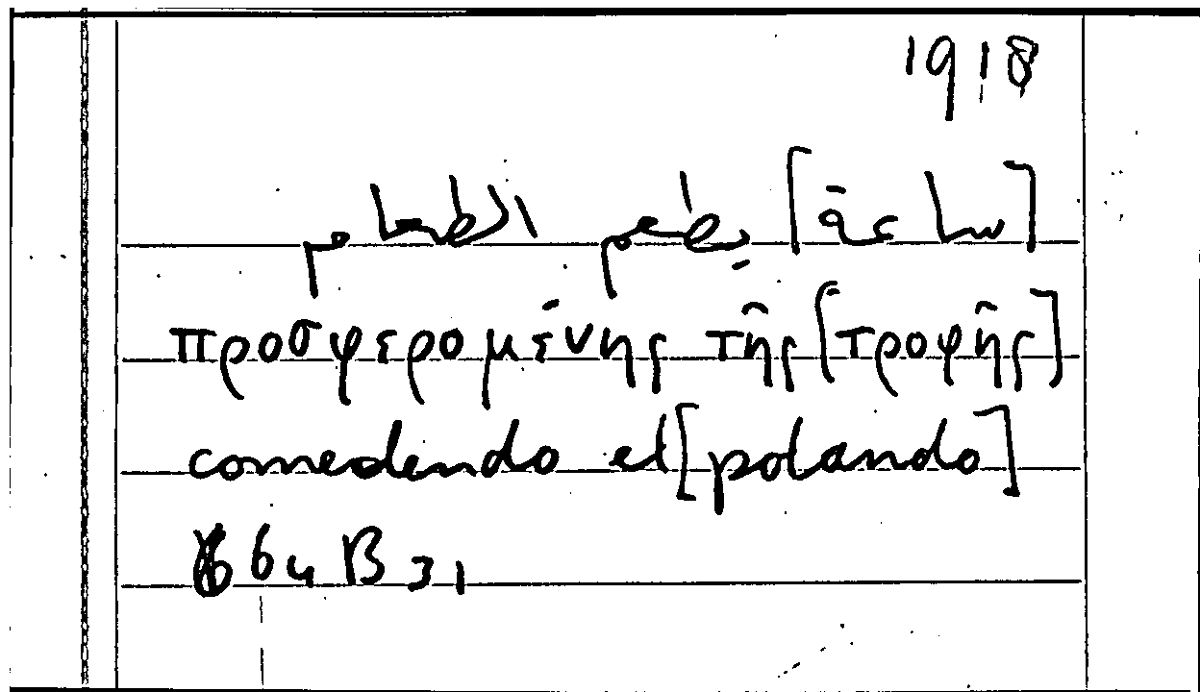 1918
[ساعة] يطعم الطعام
προσφερομένης τῆς [τροφῆς]
comedendo et [potando]
664 B 31